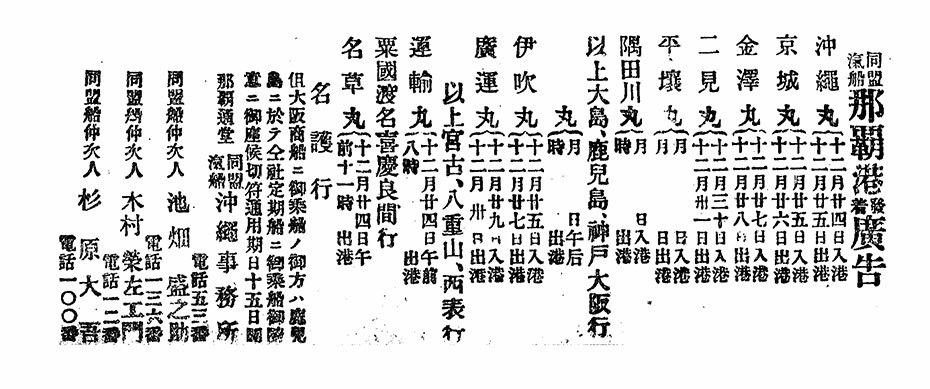 同盟汽船那覇港發着廣告
沖繩丸 十二月廿四日入港 十二月廿五日出港
京城丸 十二月廿五日入港 十二月廿六日出港
金澤丸 十二月廿七日入港 十二月廿八日出港
二見丸 十二月三十日入港 十二月卅一日出港
平壤丸 月 日入港 月 日出港
隅田川丸 月 日入港 時 出港
以上大島、鹿兒島、神戸大阪行
丸 月 日午后 時 出港
伊吹丸 十二月廿五日入港 十二月廿七日出港
廣運丸 十二月廿九日入港 十二月卅日出港
以上宮古、八重山、西表行
運輸丸 十二月廿四日午前 八時 出港
粟國渡名喜慶良間行
名草丸 十二月廿四日午 前十一時 出港
名護行
但大阪商船ニ御乘船ノ御方ハ鹿兒
島ニ於テ仝社定期船ニ御乘船御隨
意ニ御座候切符通用期日十五日間
那覇通堂 同盟汽船 沖繩事務所
電話五三番
同盟船仲次人 池畑盛之助
電話一三六番
同盟船仲次人 木村榮左衛門
電話一二番
同盟船仲次人 杉原大吾
電話一〇〇番